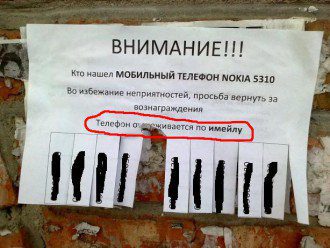 ВНИМАНИЕ!!!
Кто нашел МОБИЛЬНЫЙ ТЕЛЕФОН NOKIA 5310
Во избежание неприятностей, просьба вернуть за
вознаграждения
Телефон отслеживается по имейлу